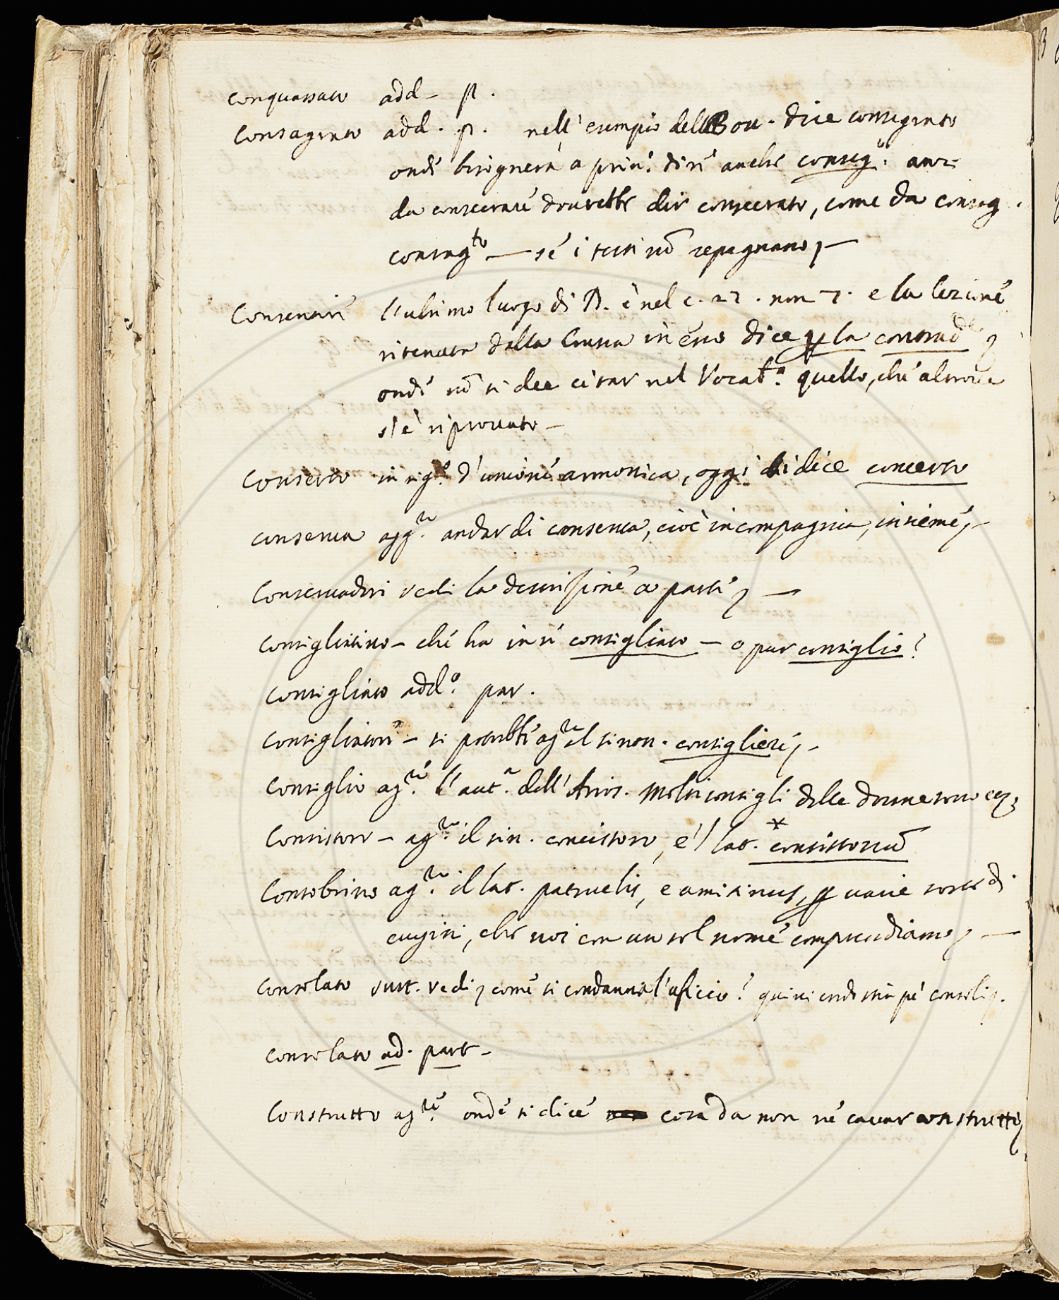 Conquassato add. p.
Consagrato add. p. nell' esempio dell Bou. dice consegrato
onde bisognerà a prin. dire anche conseg. anzi
da consecrare dovrebbe dir consecrato, come da consag.
consag.to — se i testi nō repugnano, —
Consentire l'ultimo luogo di D. è nel c. 27. non 7. e la lezione
ritenuta dalla Crusca in esso dice
onde nō si dee citar nel Vocab.o quello, che altrove
s'è riprovato —
Conserto in sig. d'unione armonica, oggi si dice concerto
consenza agg.re andar di consenza, cioè in compagnia, insieme, —
Conservadori vedi la descrizione a parte, —
Consigliativo — che ha in sé consigliato — o pur consiglio?
Consigliato add.o par.
Consigliatore — si potrebbe ag.re il sinon. consigliere, —
Consiglio ag.re l'aut.a dell' Arios. Molti consigli delle donne sono ec.
Consistoro — ag.re il sin. concistoro, e 'l lat. * consistoriū
Consobrino ag.re il lat. patruelis, e amitinus, p varie sorte di
cugini, che noi con un sol nome comprendiamo, —
Consolato sust. vedi, come si condanna l'uficio?
Consolato ad. part —
Construtto ag.re onde si dice cosa da non ne cavar construtto,